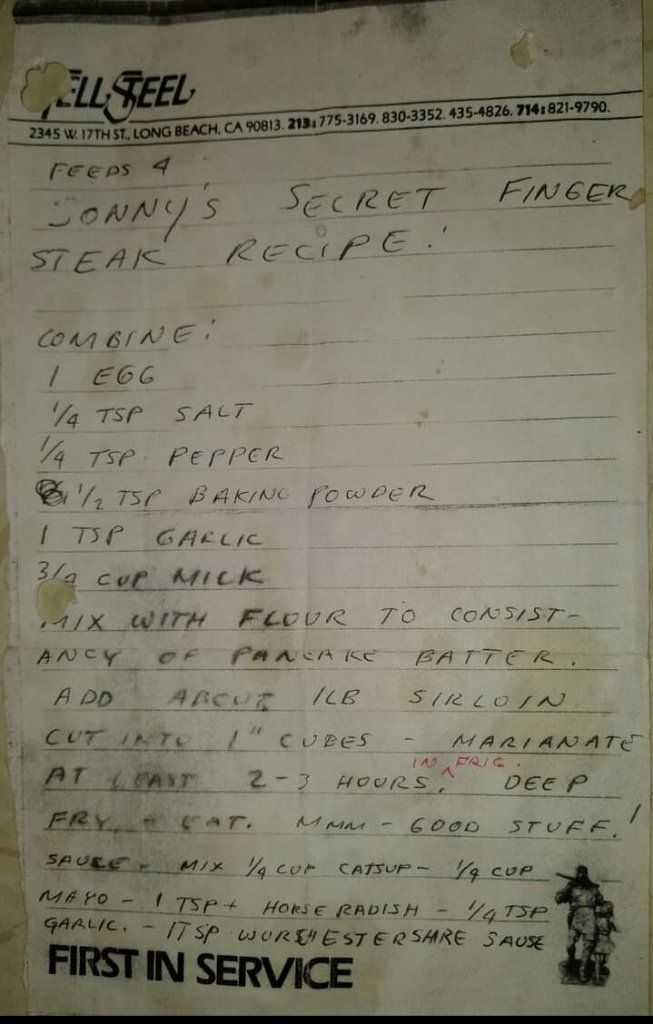 ELL STEEL
2345 W. 17TH ST., LONG BEACH, CA 90813. 213: 775-3169. 830-3352. 435-4826. 714: 821-9790.
FEEDS 4
JONNY'S SECRET FINGER
STEAK RECIPE:
COMBINE:
1 EGG
1/4 TSP SALT
1/4 TSP PEPPER
1/2 TSP BAKING POWDER
1 TSP GARLIC
3/4 CUP MILK
MIX WITH FLOUR TO CONSIST-
ANCY OF PANCAKE BATTER.
ADD ABOUT 1LB SIRLOIN
CUT INTO 1" CUBES - MARIANATE
IN FRIG.
AT LEAST 2-3 HOURS. DEEP
FRY - EAT. MMM - GOOD STUFF!
SAUCE - MIX 1/4 CUP CATSUP - 1/4 CUP
MAYO - 1 TSP + HORSE RADISH - 1/4 TSP
GARLIC. - 1TSP WORSHESTERSHIRE SAUSE
FIRST IN SERVICE